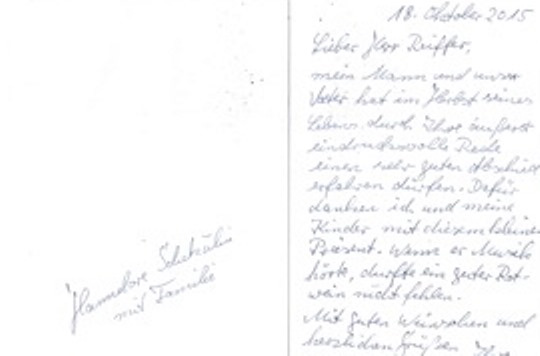 18. Oktober 2015
Lieber Herr Reiffer,
mein Mann und unser
Vater hat im Herbst seines
Lebens durch Ihre äußerst
eindrucksvolle Rede
einen sehr guten Abschied
erfahren dürfen. Dafür
danken ich und meine
Kinder mit diesem kleinen
Präsent. Wenn er Musik
hörte, durfte ein guter Rot-
wein nicht fehlen.
Mit guten Wünschen und
herzlichen Grüßen
Hannelore
mit Familie